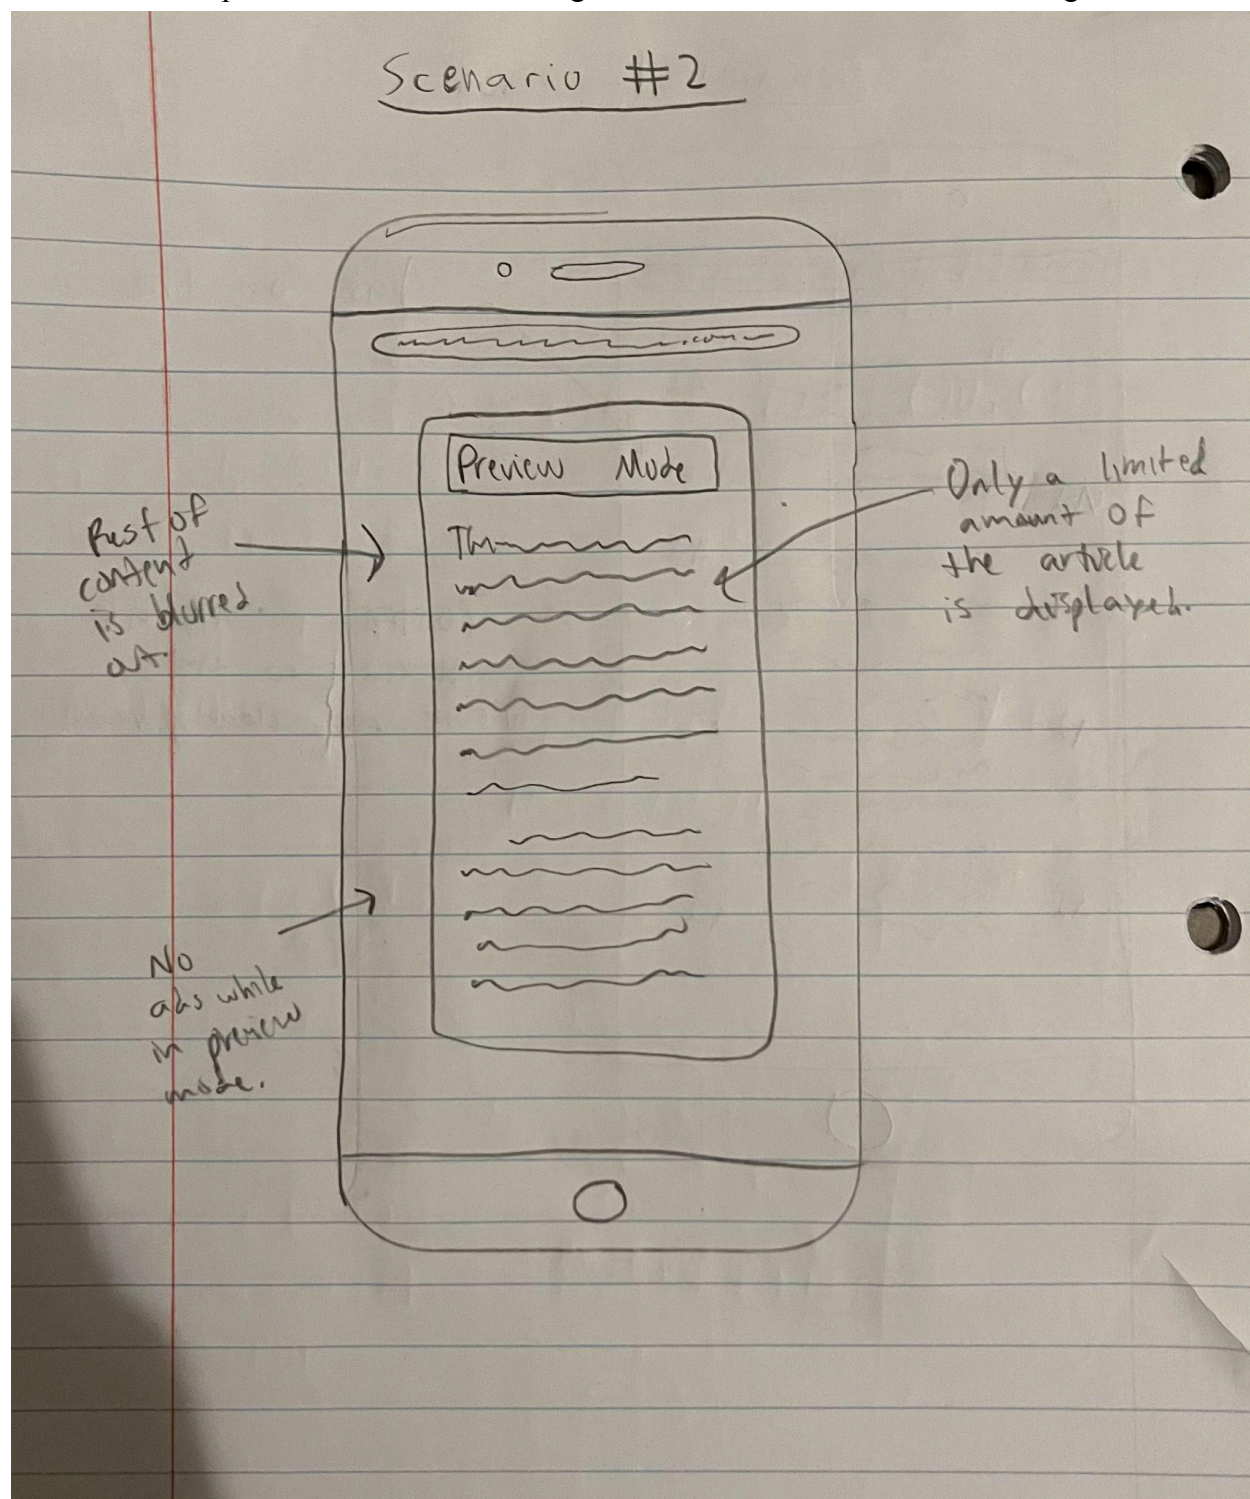 Scenario #2
.com
Preview Mode
Th
Rest of
content
is blurred
out.
Only a limited
amount of
the article
is displayed.
No
ads while
in preview
mode.